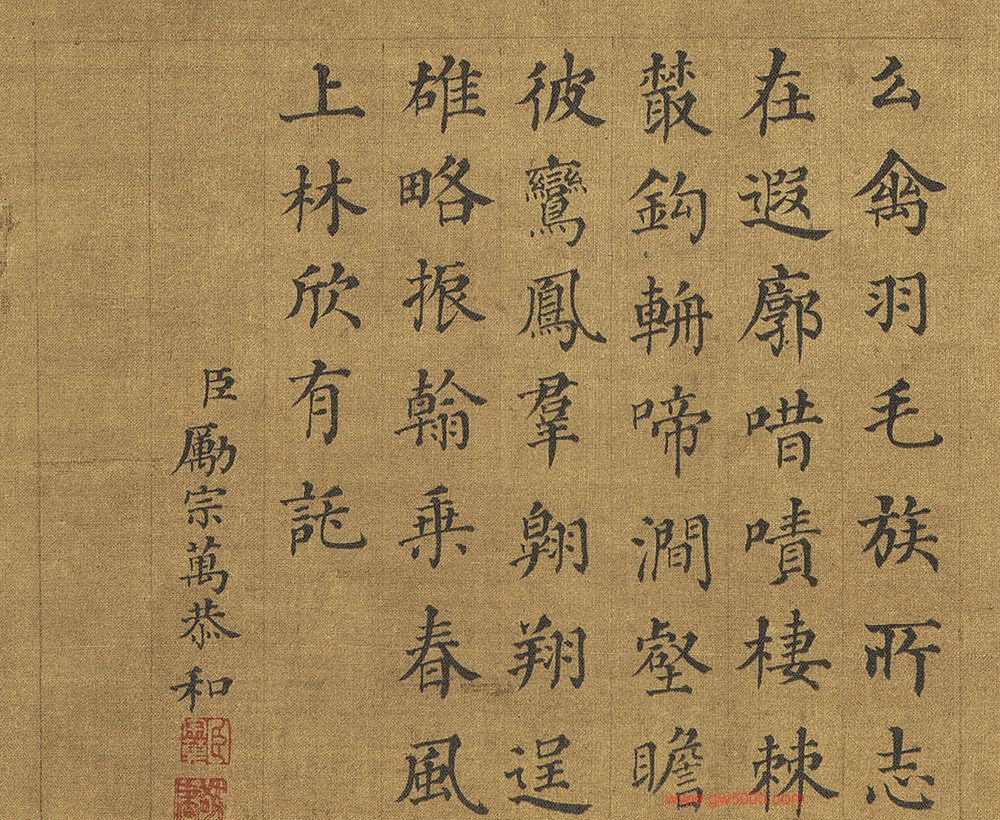 幺禽羽毛族所志
在遐廓唶嘖棲棘
叢鈎輈啼澗壑瞻
彼鸞鳳羣翱翔逞
雄略振翰乗春風
上林欣有託
臣勵宗萬恭和